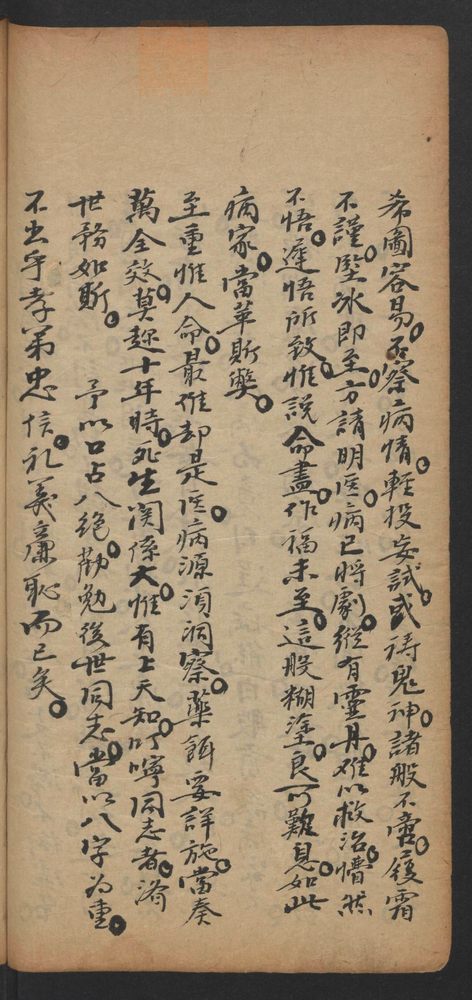 希圖容易。不察病情。輕投妄試。或禱鬼神。諸般不啻。履霜
不謹。堅冰即至。方請明医。病已將劇。縱有靈丹。难以救治。懵然
不悟。遲悟所致。惟說命盡。作福未至。這般糊塗。良可難息。如此
病家。當革斯獘。
至重惟人命。最难却是医。病源須洞察。藥餌要詳施。當奏
萬全效。莫趂十年時。死生関係大。惟有上天知。叮嚀同志者。濟
世務如斯。 予以口占八絕。勸勉後世同志。當以八字为重。
不出乎孝弟忠信。礼義廉恥而已矣。